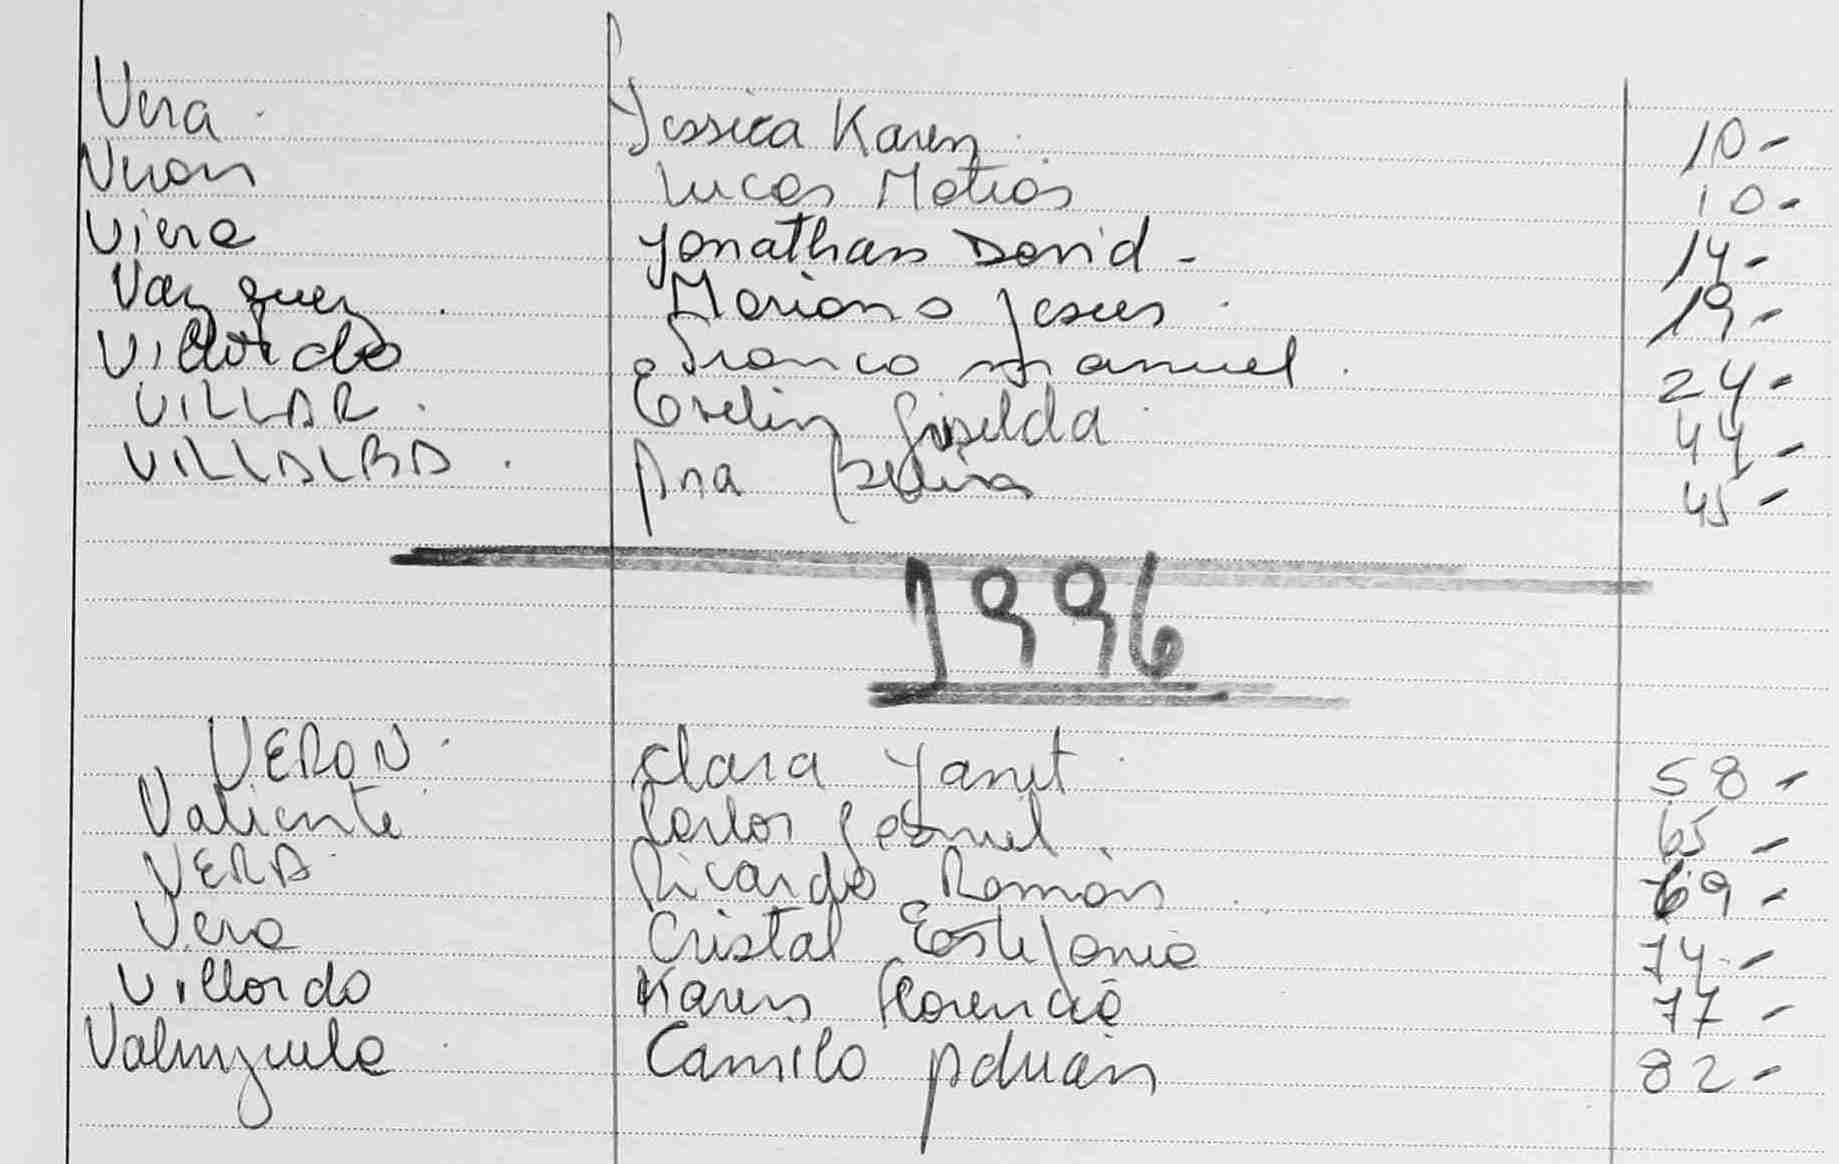 Vera Jessica Karen 10-
Veron Lucas Matias 10-
Viera Jonathan David - 14-
Vazquez Mariano Jesus 19-
Villordo Franco Manuel 24-
VILLAR Evelin Griselda 44-
VILLALBA Ana Belén 45-
1996
VERON Clara Yanet 58-
Valiente Carlos 65-
VERA Ricardo Ramón 69-
Vera Cristal Estefania 74-
Villordo Karen Florencia 77-
Valenzuela Camilo Adrián 82-